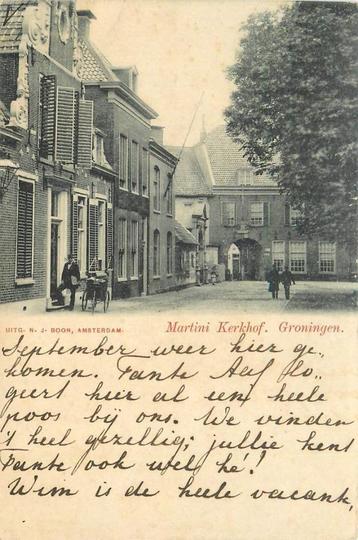 UITG. N. J. BOON, AMSTERDAM.
Martini Kerkhof. Groningen.
September weer hier ge„
komen. Tante Aaf lo„
geert hier al een heele
poos bij ons. We vinden
't heel gezellig; jullie kent
Tante ook wel hé!
Wim is de heele vacant„